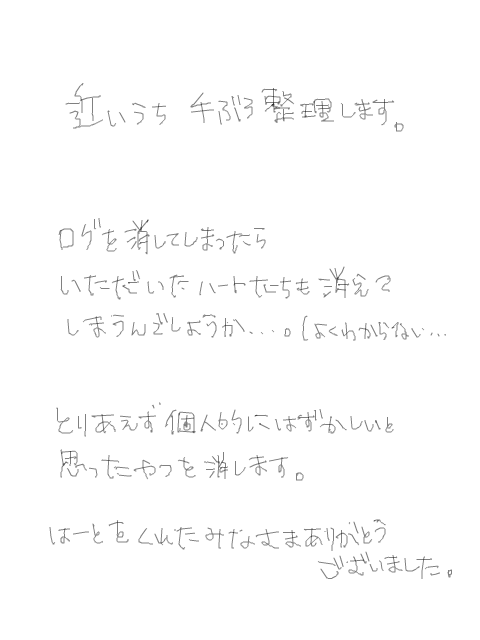 近いうち 手ぶろ整理します。
ログを消してしまったら
いただいたハートたちも消えて
しまうんでしょうか...。(よくわからない...
とりあえず個人的にはずかしいと
思ったやつを消します。
はーとをくれたみなさまありがとう
ございました。